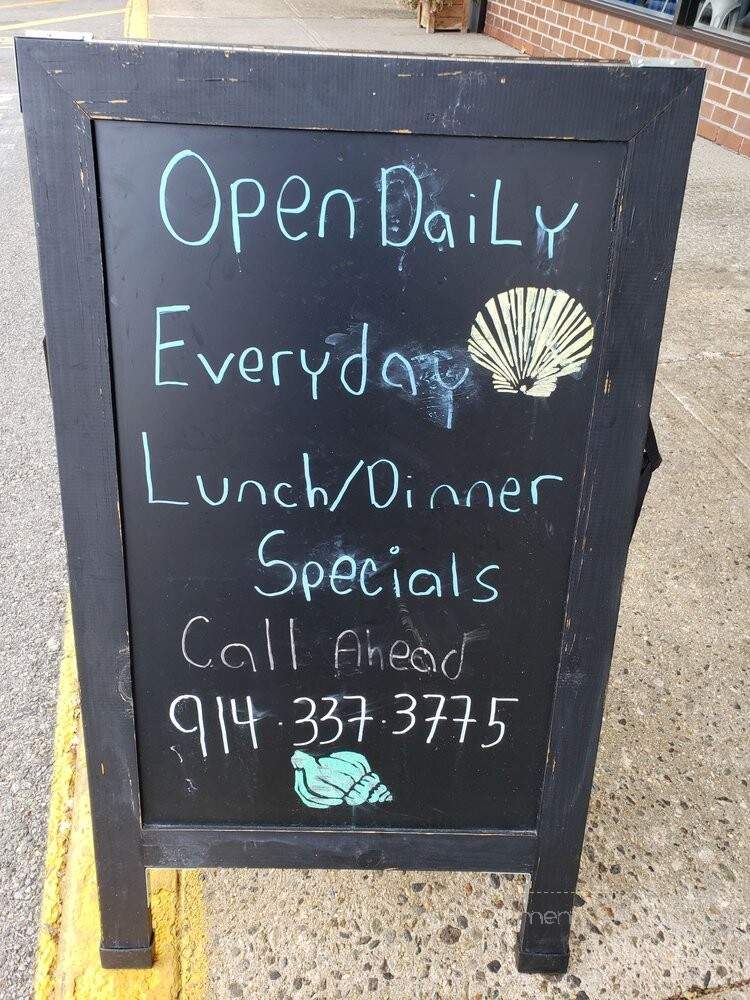 Open DaiLy
Everyday
Lunch/Dinner
Specials
Call Ahead
914.337.3775